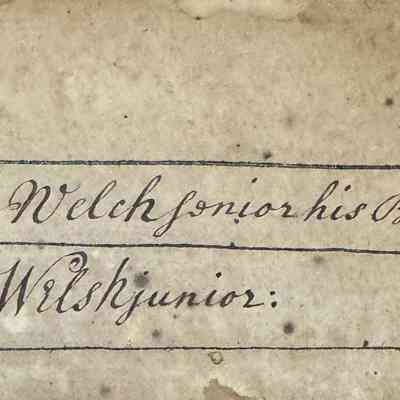 Welch senior his
Welsh junior: